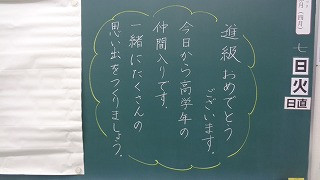 進級おめでとう
ございます。
今日から高学年の
仲間入りです。
一緒にたくさんの
思い出をつくりましょう。
月(四月)
七
日
火
日直